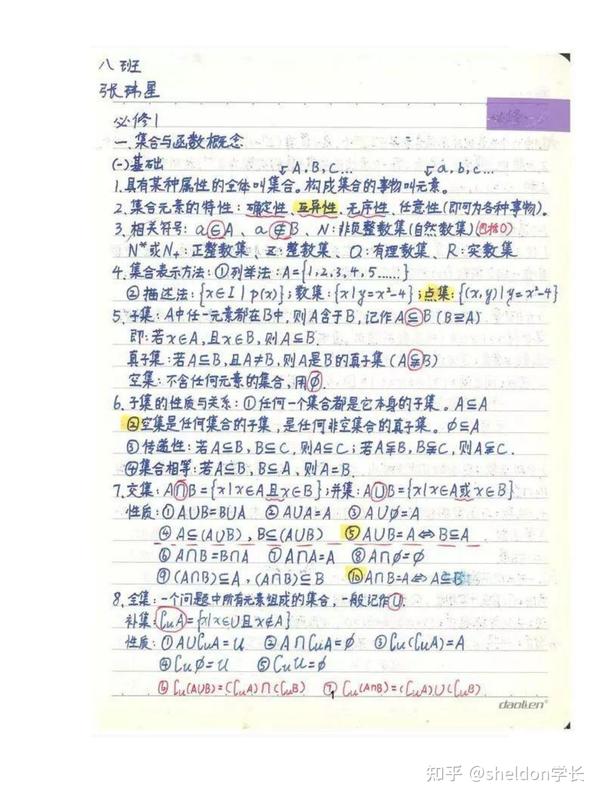 八班
张玮星
必修1
必修一
一.集合与函数概念
(一)基础 A.B,C... a,b,c...
1.具有某种属性的全体叫集合。构成集合的事物叫元素。
2.集合元素的特性:确定性、互异性、无序性、任意性(即可为各种事物)。
3.相关符号:a∈A、a∉B、N:非负整数集(自然数集)(包括0)
N*或N+:正整数集、Z:整数集、Q:有理数集、R:实数集
4.集合表示方法:①列举法:A={1,2,3,4,5……}
②描述法:{x∈I|p(x)};数集:{x|y=x²-4};点集:{(x,y)|y=x²-4}
5.子集:A中任一元素都在B中,则A含于B,记作A⊆B(B⊇A)
即:若x∈A,且x∈B,则A⊆B.
真子集:若A⊆B,且A≠B,则A是B的真子集(A⫋B)
空集:不含任何元素的集合,用∅.
6.子集的性质与关系:①任何一个集合都是它本身的子集。A⊆A
②空集是任何集合的子集,是任何非空集合的真子集。∅⊆A
③传递性:若A⊆B,B⊆C,则A⊆C;若A⫋B,B⫋C,则A⫋C.
④集合相等:若A⊆B,B⊆A、则A=B.
7.交集:A∩B={x|x∈A且x∈B};并集:A∪B={x|x∈A或x∈B}
性质:①A∪B=B∪A ②A∪A=A ③A∪∅=A
④A⊆(A∪B),B⊆(A∪B) ⑤A∪B=A⇔B⊆A
⑥A∩B=B∩A ⑦A∩A=A ⑧A∩∅=∅
⑨(A∩B)⊆A,(A∩B)⊆B ⑩A∩B=A⇔A⊆B
8.全集:一个问题中所有元素组成的集合,一般记作U.
补集:∁uA={x|x∈U且x∉A}
性质:①A∪∁uA=U ②A∩∁uA=∅ ③∁u(∁uA)=A
④∁u∅=U ⑤∁uU=∅
⑥∁u(A∪B)=(∁uA)∩(∁uB) ⑦∁u(A∩B)=(∁uA)∪(∁uB)
1
daolien®
知乎 @sheldon学长